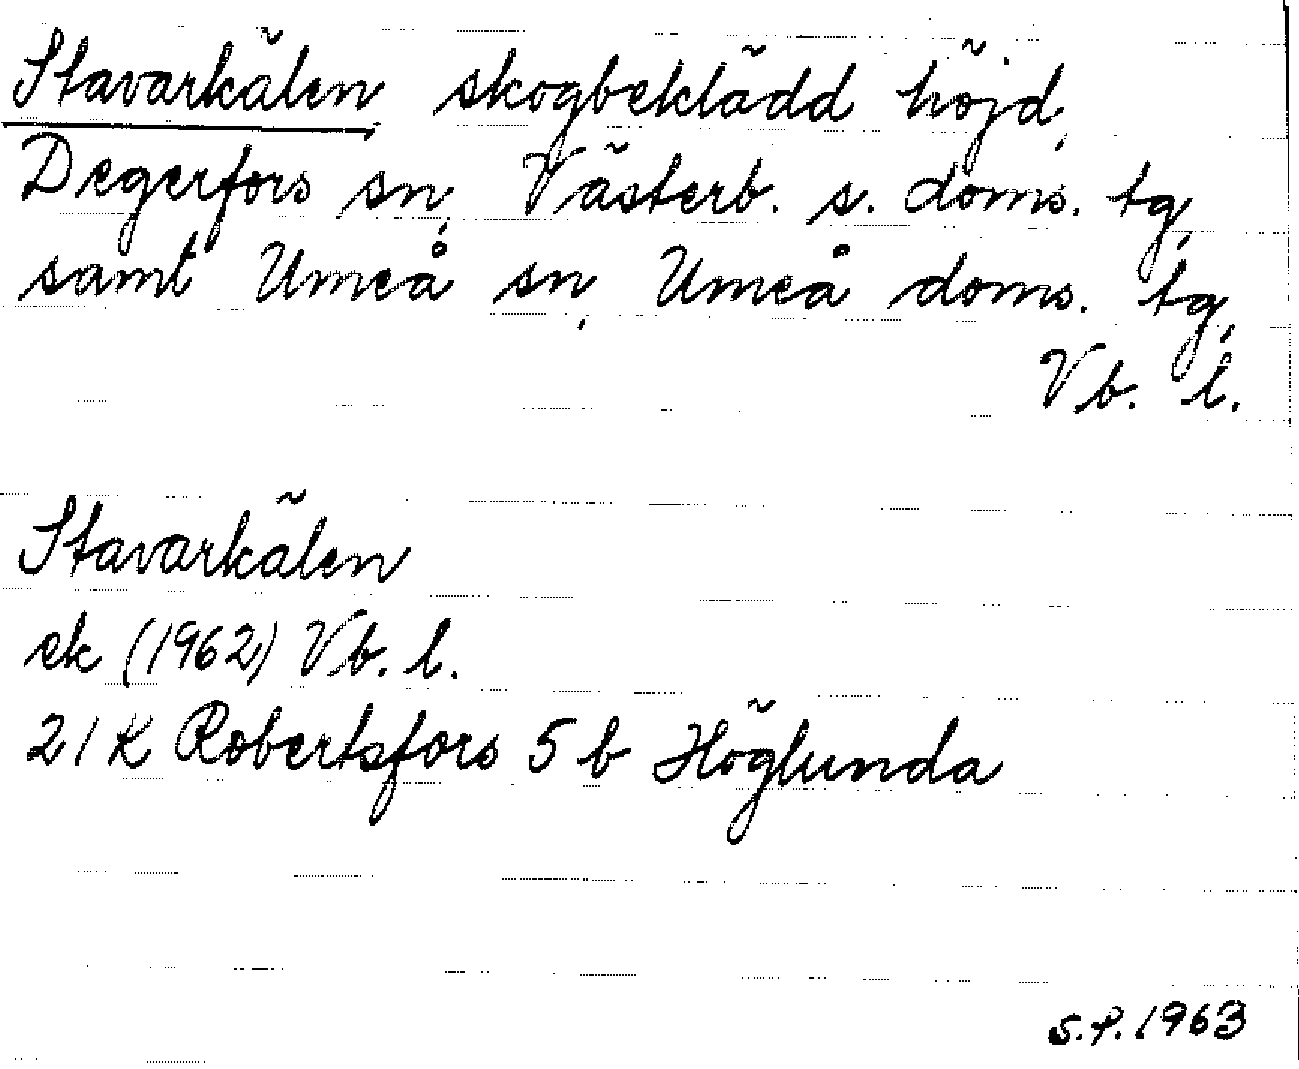 Stavarkälen skogbeklädd höjd,
Degerfors sn, Västerb. s. doms. tg,
samt Umeå sn, Umeå doms. tg,
Vb. l.
Stavarkälen
ek (1962) Vb. l.
21 K Robertsfors 5 b Höglunda
S.P. 1963